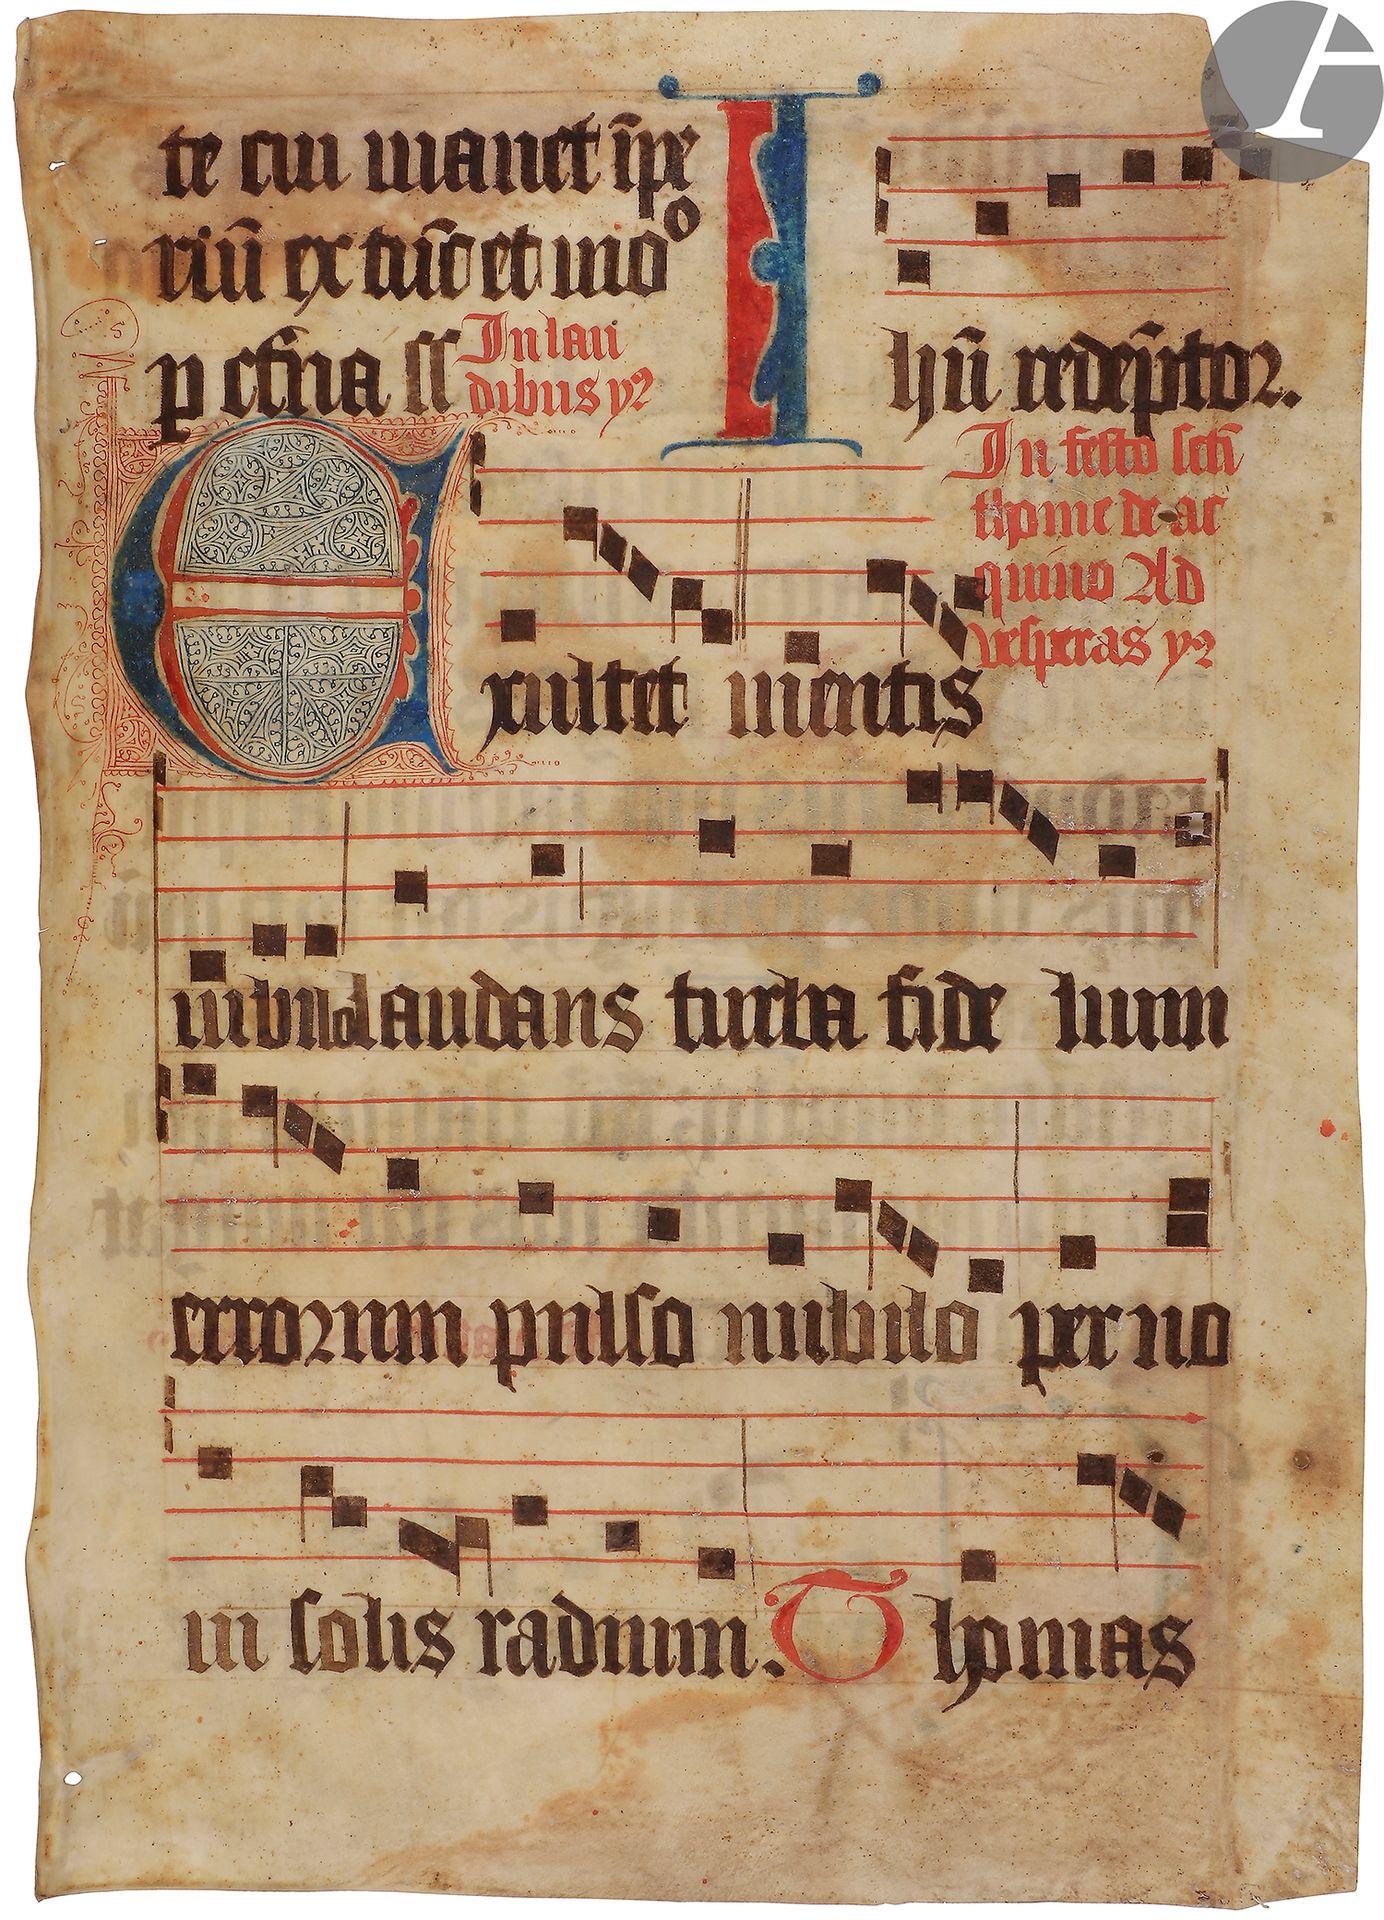 te cui manet īpe
riū ex tūc et mō
p ctīna ss
In lau
dibus y2
I
hū redēptor.
In festo scti
thome de ac
quino Ad
vesperas y2
Exultet mentis
iubilo laudans turba fidelium
errorum pulso nubilo per no
ui solis radium. Thomas